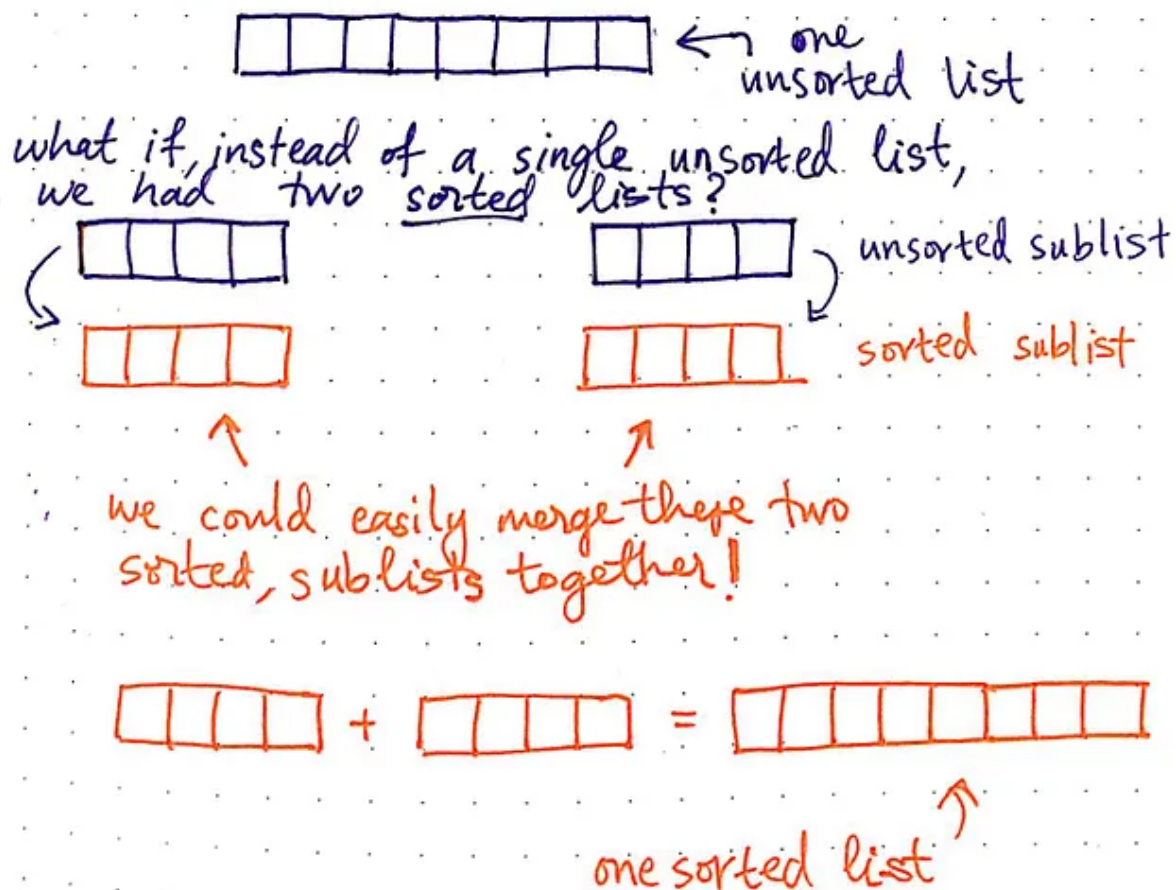 one
unsorted list
what if, instead of a single unsorted list,
we had two sorted lists?
unsorted sublist
sorted sublist
we could easily merge these two
sorted, sublists together!
+ =
one sorted list